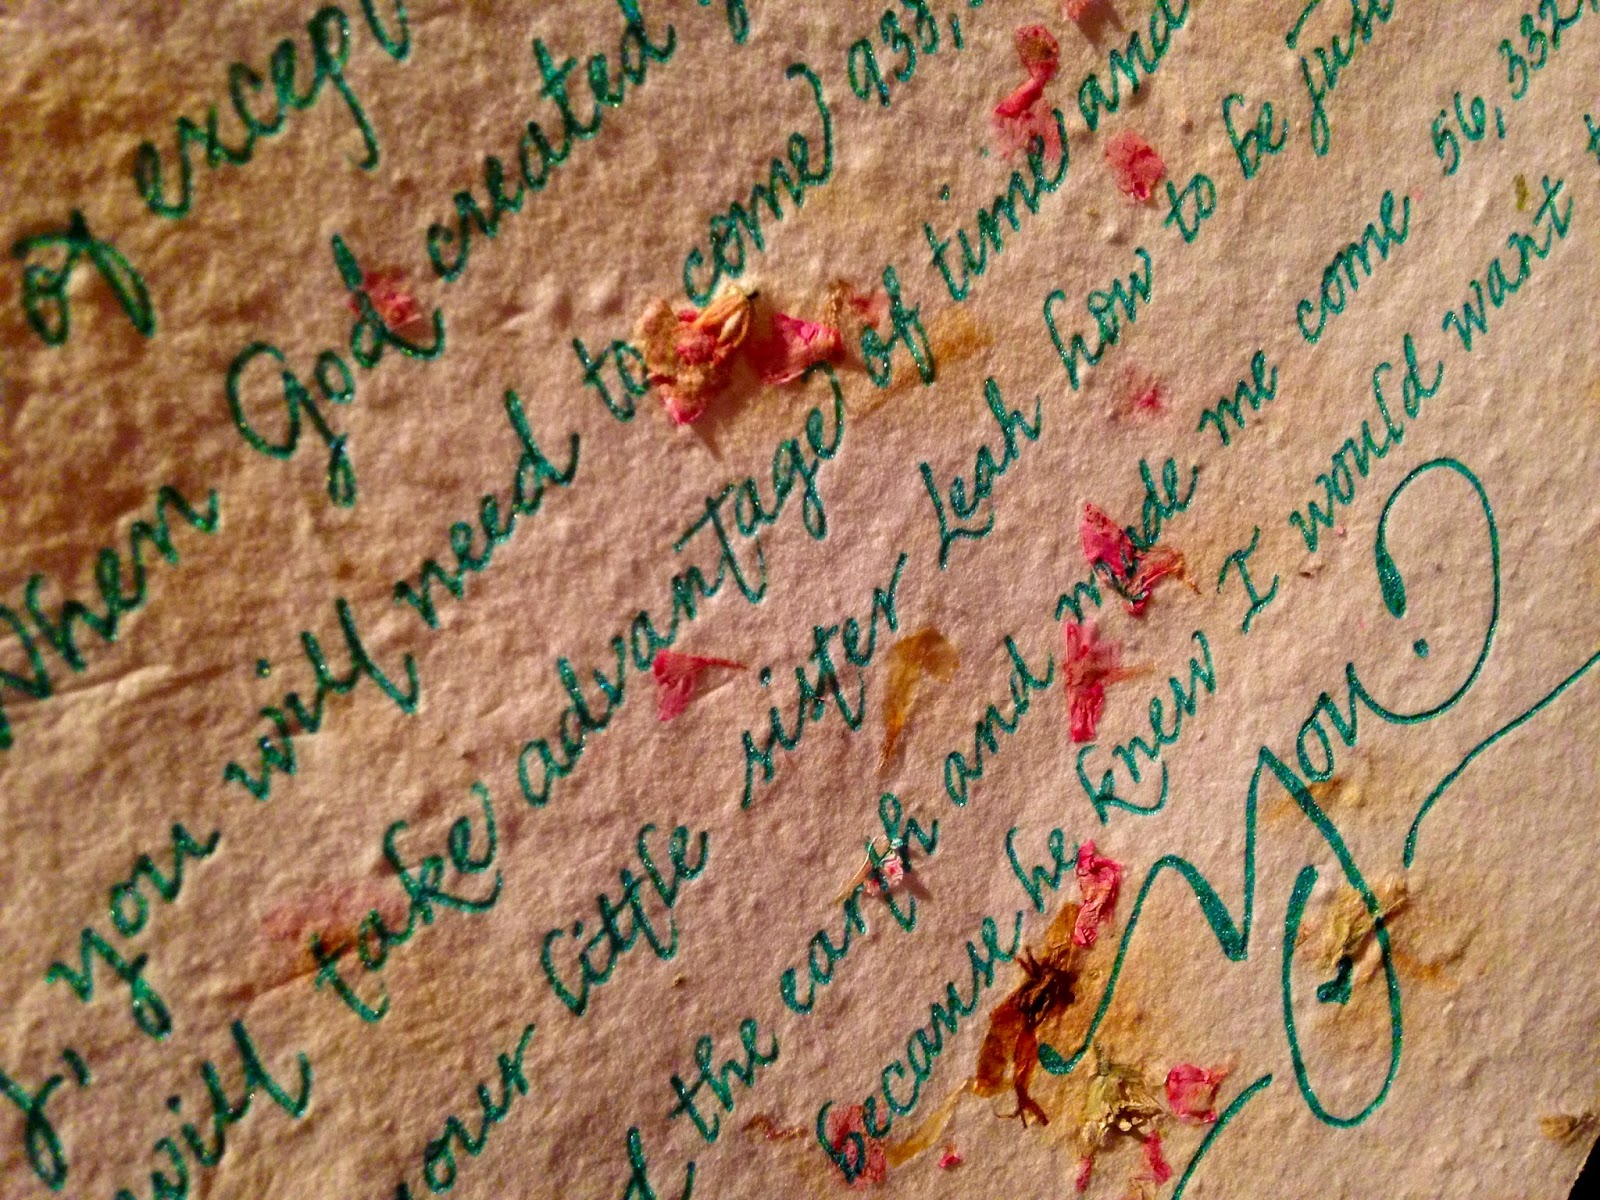 of except
When God created
you will need to come 938,
will take advantage of time and
your little sister Leah how to be just
the earth and made me come 56,332,
because he knew I would want
You.